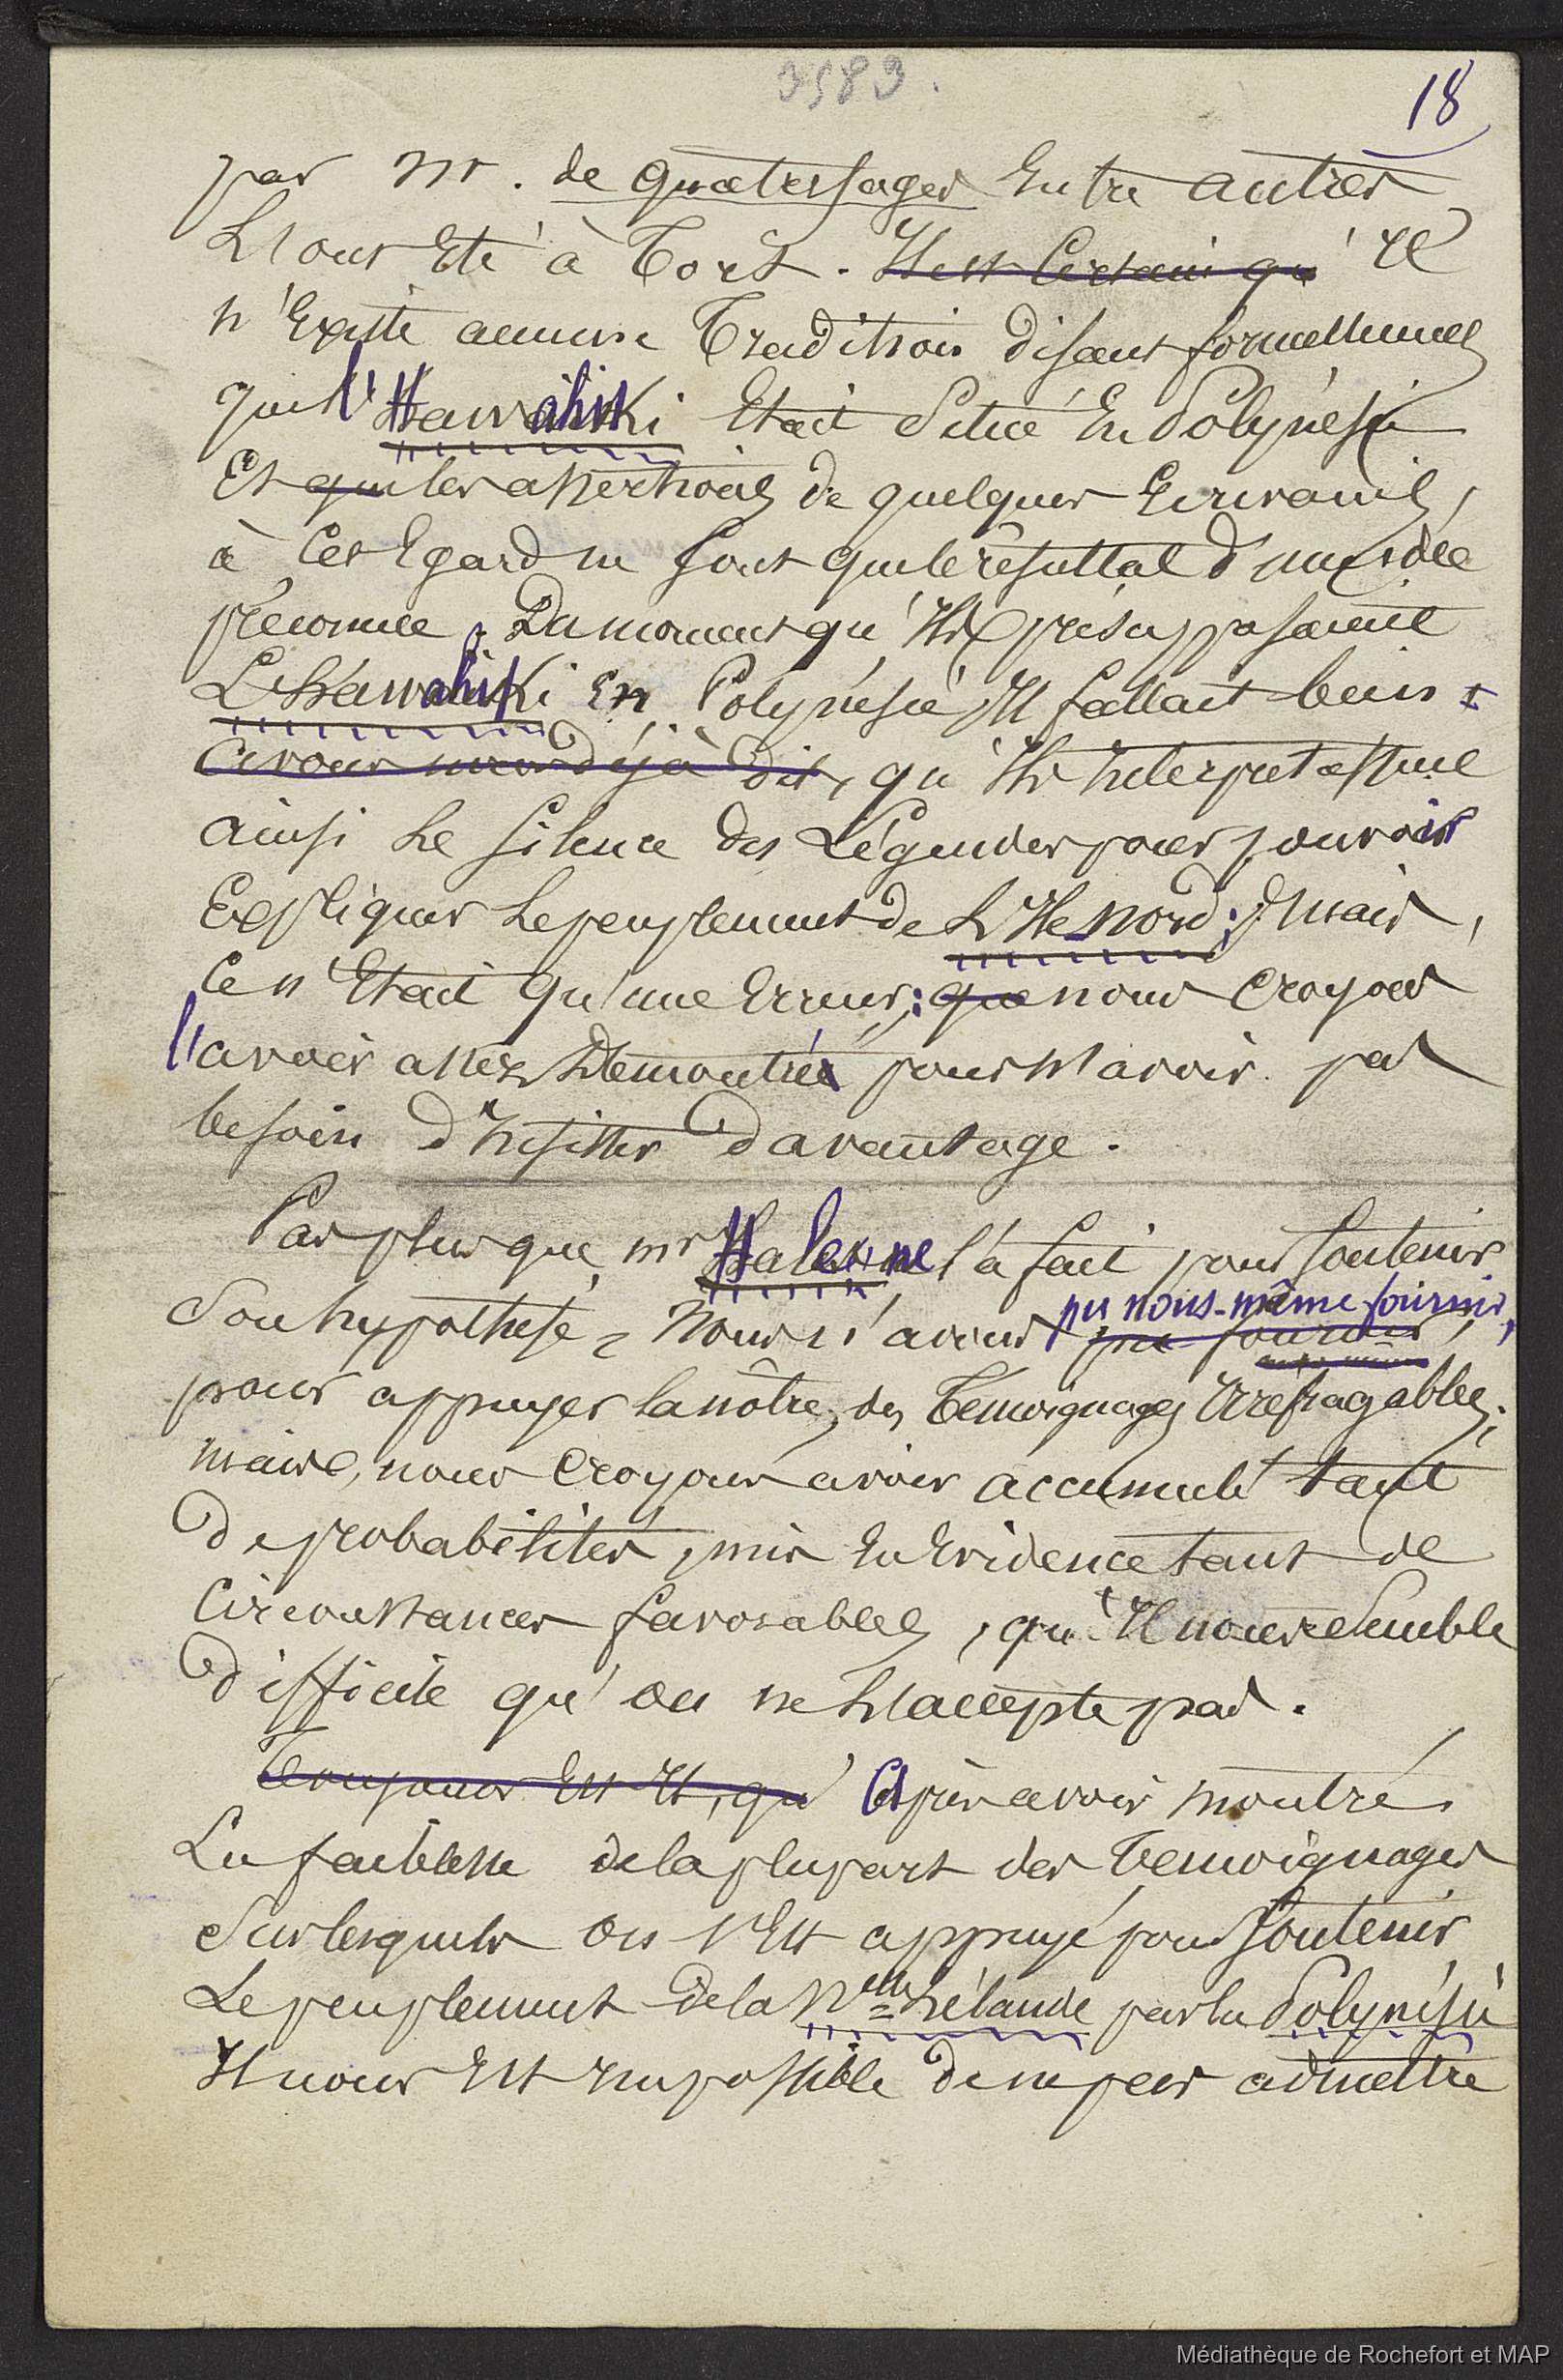 3583.
18
par Mr. de quatrefages Entre autres
L'ont Eté à Tort. Il est Certain qu' Il
n'Existe aucune Tradition disant formellement
que l'Hawahiki Etait Située En Polynésie
Et que les assertions de quelques Ecrivains,
à Cet Egard ne sont que le résultat d'une idée
préconcue. Du moment qu'Ils présupposaient
L'Hawahiki En Polynésie, Il fallait bien
avons nous déjà dit, qu'Ils Interpretassent
ainsi Le silence des Légendes pour pouvoir
Expliquer Le peuplement de L'Ile nord; mais,
Ce n'Etait qu'une Erreur; que nous Croyons
l'avoir assez Démontré pour N'avoir pas
besoin d'Insister davantage.
Pas plus que Mr Hale ne l'a fait pour Soutenir
Son hypothèse, Nous n'avons pu fournir pu nous-même fournir,
pour appuyer la nôtre, des Témoignages Irréfragables;
mais, nous Croyons avoir accumulé tant
de probabilités, mis En Evidence tant de
Circonstances favorables, qu'Il nous Semble
difficile qu'on ne L'accepte pas.
Toujours Est Il, qu' Après avoir montré
La faiblesse de la plupart des Témoignages
Sur lesquels on s'Est appuyé pour Soutenir
Le peuplement de la Nlle Zélande par la Polynésie
Il nous Est Impossible de ne pas admettre
Médiathèque de Rochefort et MAP